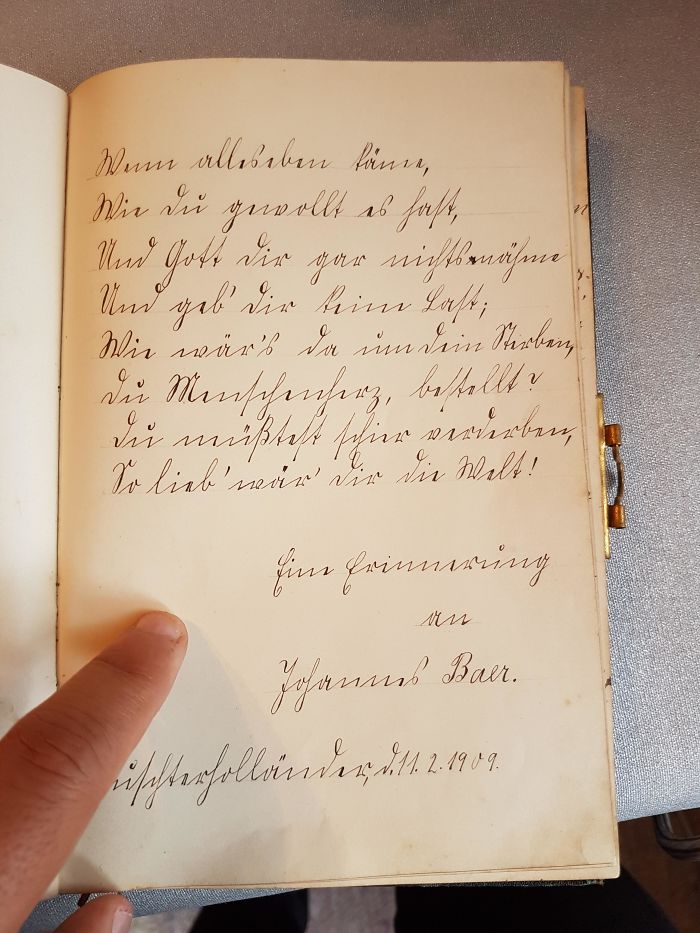 Wenn alles eben käme,
Wie du gewollt es hast,
Und Gott dir gar nichts nähme
Und geb' dir keine Last;
Wie wär's da um dein Sterben,
du Menschenherz, bestellt?
Du müßtest schier verderben,
So lieb' wär' dir die Welt!
Eine Erinnerung
an
Johannes Baer.
uschterholländer, d. 11. 2. 1909.